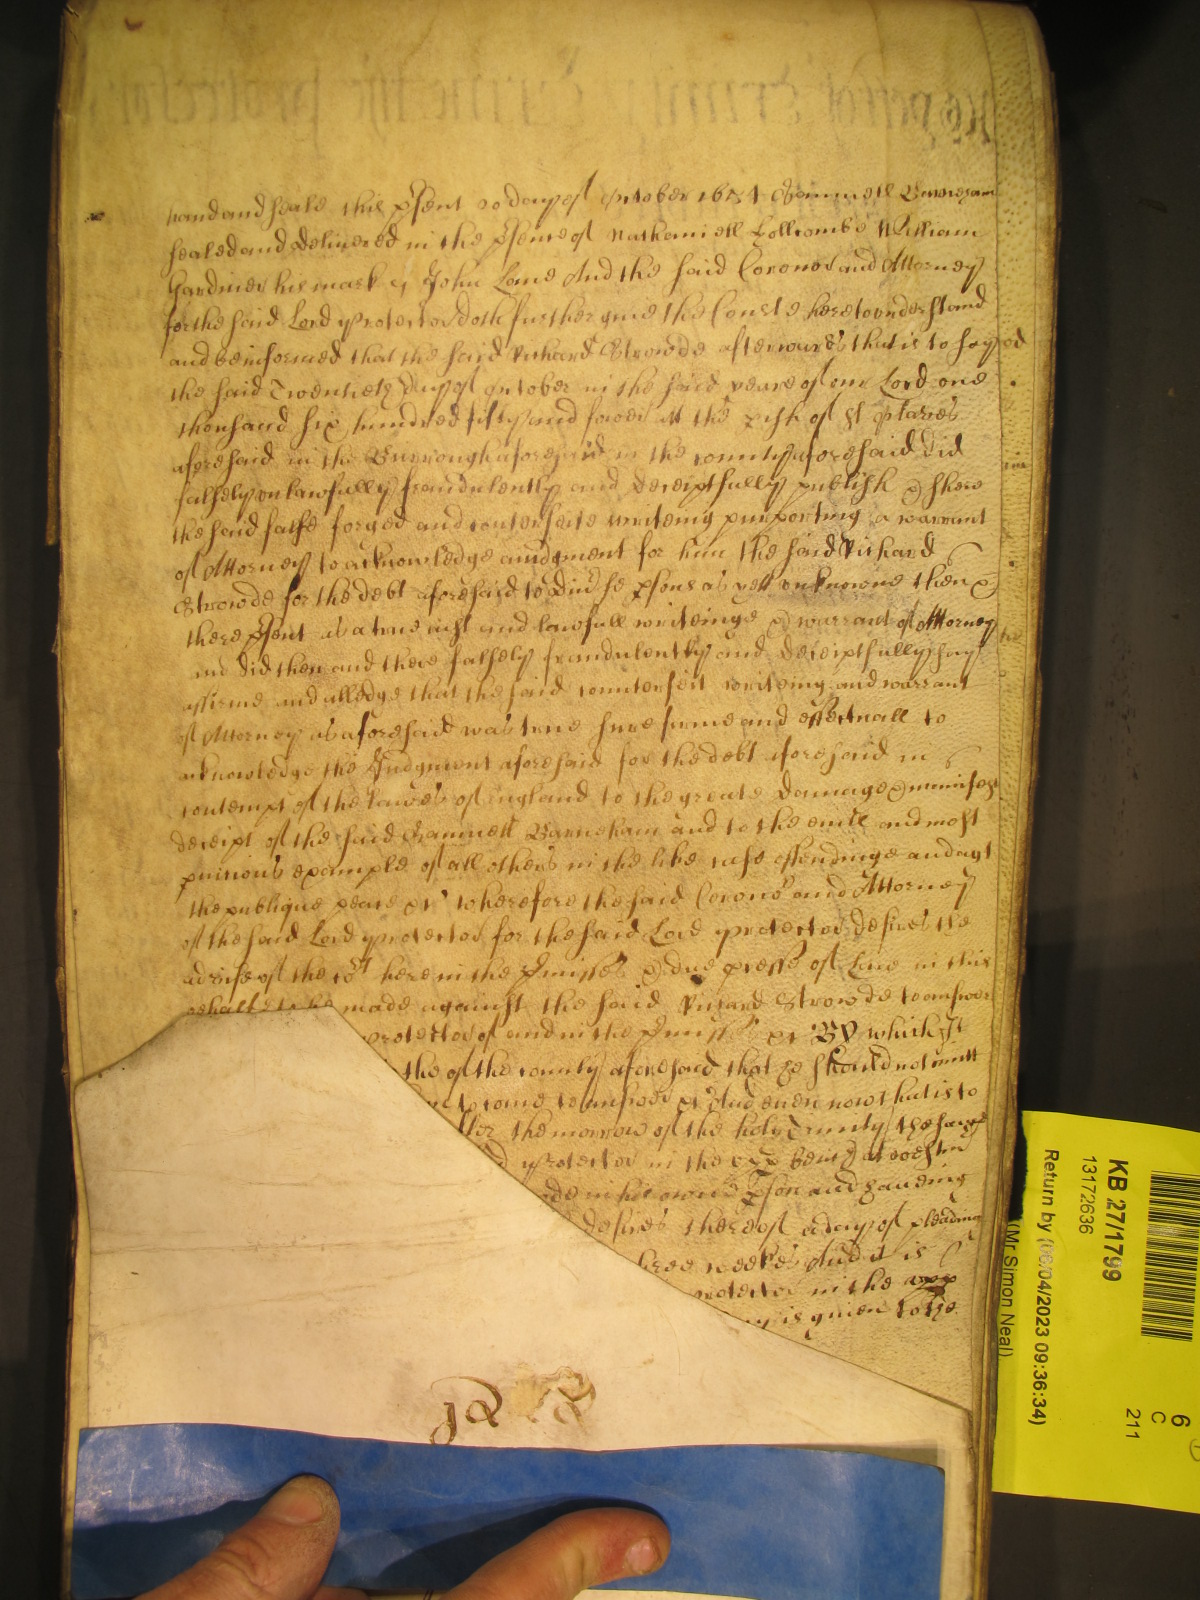 hand and seale this psent 20 day of October 1654 Samuell Barneham
sealed and delivered in the psence of Nathaniell Collcombe William
Gardiner his mark John Lane And the said Coronor and Attorney
for the said Lord Protector doth further give the Courte here to understand
and be informed that the said Richard Strowde afterwards that is to say
the said Twentieth day of October in the said yeare of our Lord one
thousand six hundred fifty and fower at the pish of St Maries
aforesaid in the Burrough aforesaid in the county aforesaid did
falsely unlawfully fraudulently and deceiptfully publish & shew
the said false forged and counterfeite writeing purporting a warrant
of Attorney to acknowledge a iudgment for him the said Richard
Strowde for the debt aforesaid to divse psons as yett unknowne then &
there psent as a true iust and lawfull writeinge & warrant of Attorney
and did then and there falsely fraudulently and deceiptfully say
affirme and alledge that the said counterfeit writeing and warrant
of Attorney as aforesaid was true sure firme and effectuall to
acknowledge the Judgment aforesaid for the debt aforesaid in
contempt of the lawes of England to the greate damage & manifest
deceipt of the said Samuell Barneham and to the evill and most
pnicious example of all others in the like case offendinge and agt
the publique peace &c wherefore the said Coronor and Attorney
of the said Lord Protector for the said Lord Protector desires the
advise of the Ct here in the pmisses & due pcesse of Law in this
behalfe to be made against the said Richard Strowde to answer
Protector of and in the pmisses &c By which It
the of the county aforesaid that he should not omitt
to come to answer &c And even now that is to
the morrow of the holy Trinity the same
Protector in the upp bench at westm
in his owne pson and haveing
desires thereof a day of pleading
three weekes And it is
Protector in the upp
is given to the
KB 27/1799
13172636
Return by (06/04/2023 09:36:34)
(Mr Simon Neal)
6
C
211